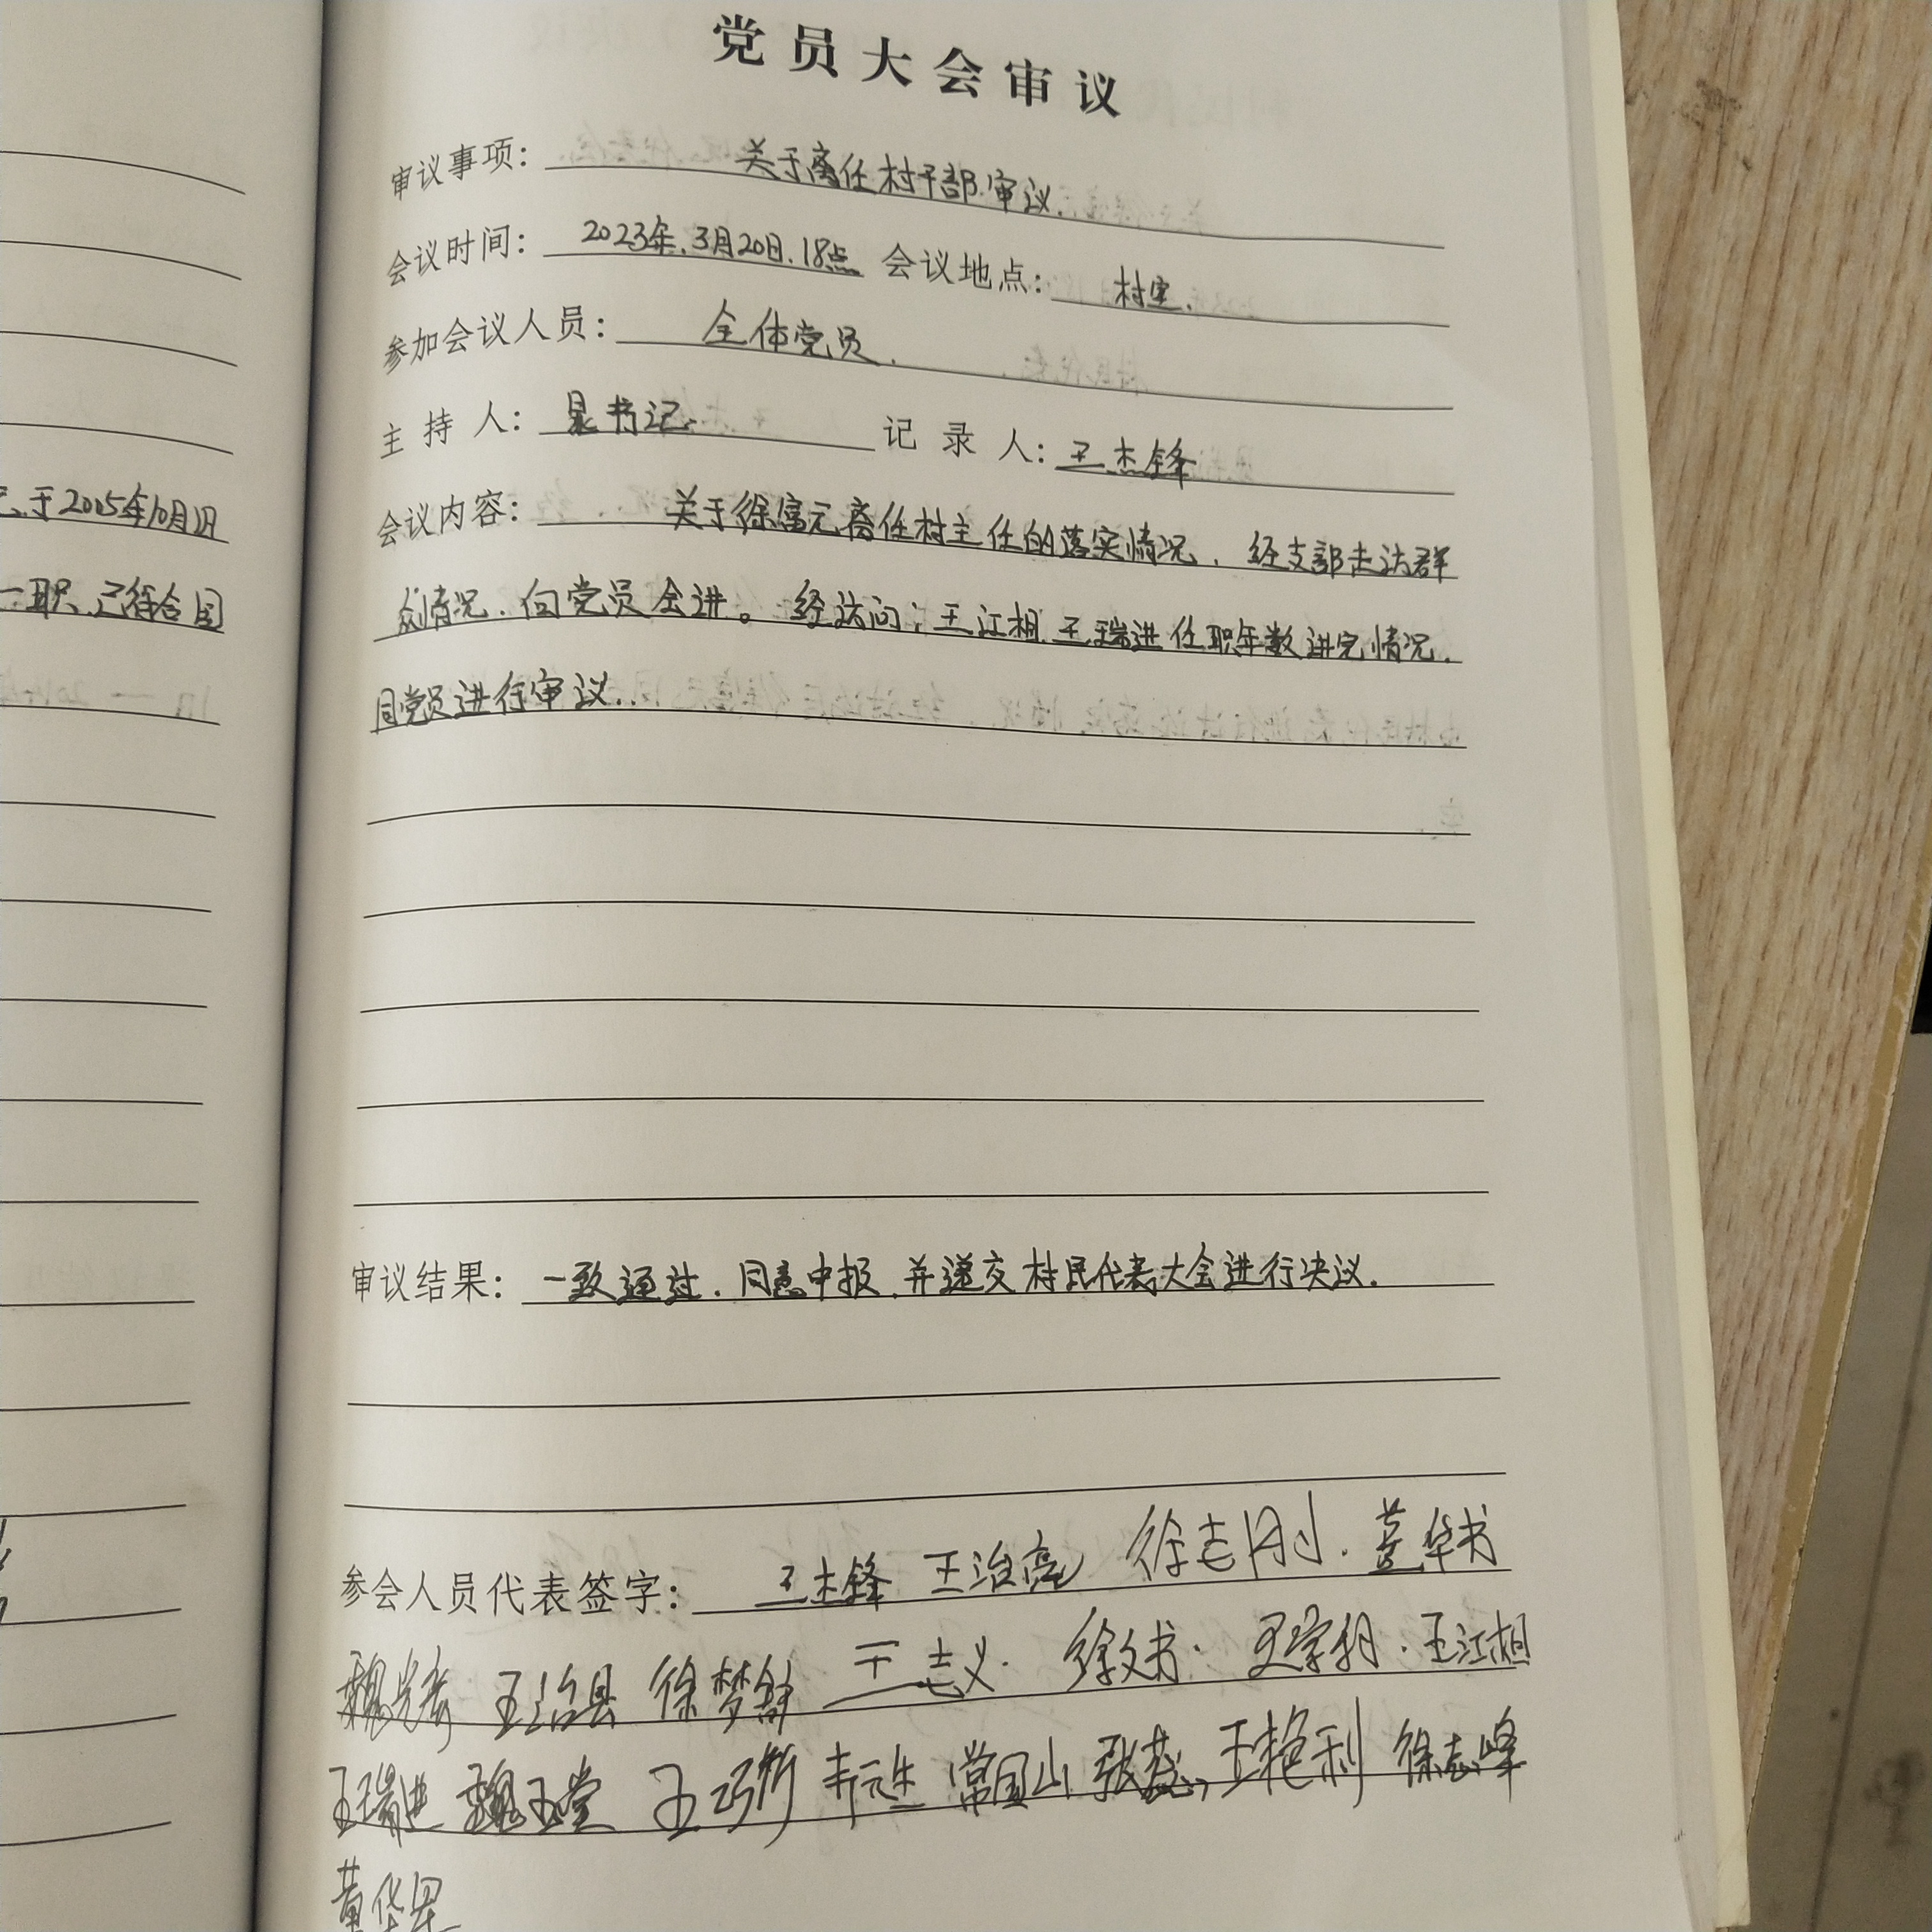 于2005年10月1日
一职,已符合国
党员大会审议
审议事项: 关于离任村干部审议.
会议时间: 2023年.3月20日.18点 会议地点: 村室.
参加会议人员: 全体党员.
主持人: 书记. 记录人: 王杰锋
会议内容: 关于徐富元离任村主任的落实情况, 经支部走访群
众情况.向党员会讲。经访问:王江相 王瑞进任职年数讲完情况.
同党员进行审议..
审议结果: 一致通过.同意申报.并递交村民代表大会进行决议.
参会人员代表签字: 王杰锋 王治亮 徐志刚.
王治县 徐梦 王志义. 徐文书. 王江相
王瑞进 魏玉堂 王 常国山 张 王艳利 徐志峰
黄华